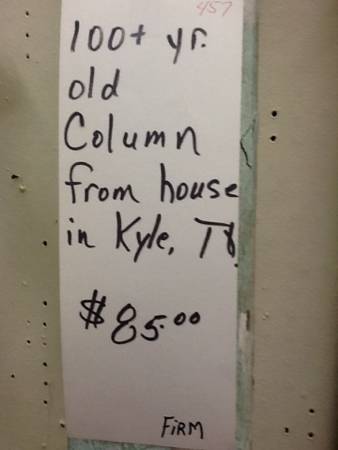 457
100+ yr.
old
Column
from house
in Kyle, TX
$85.00
FiRM